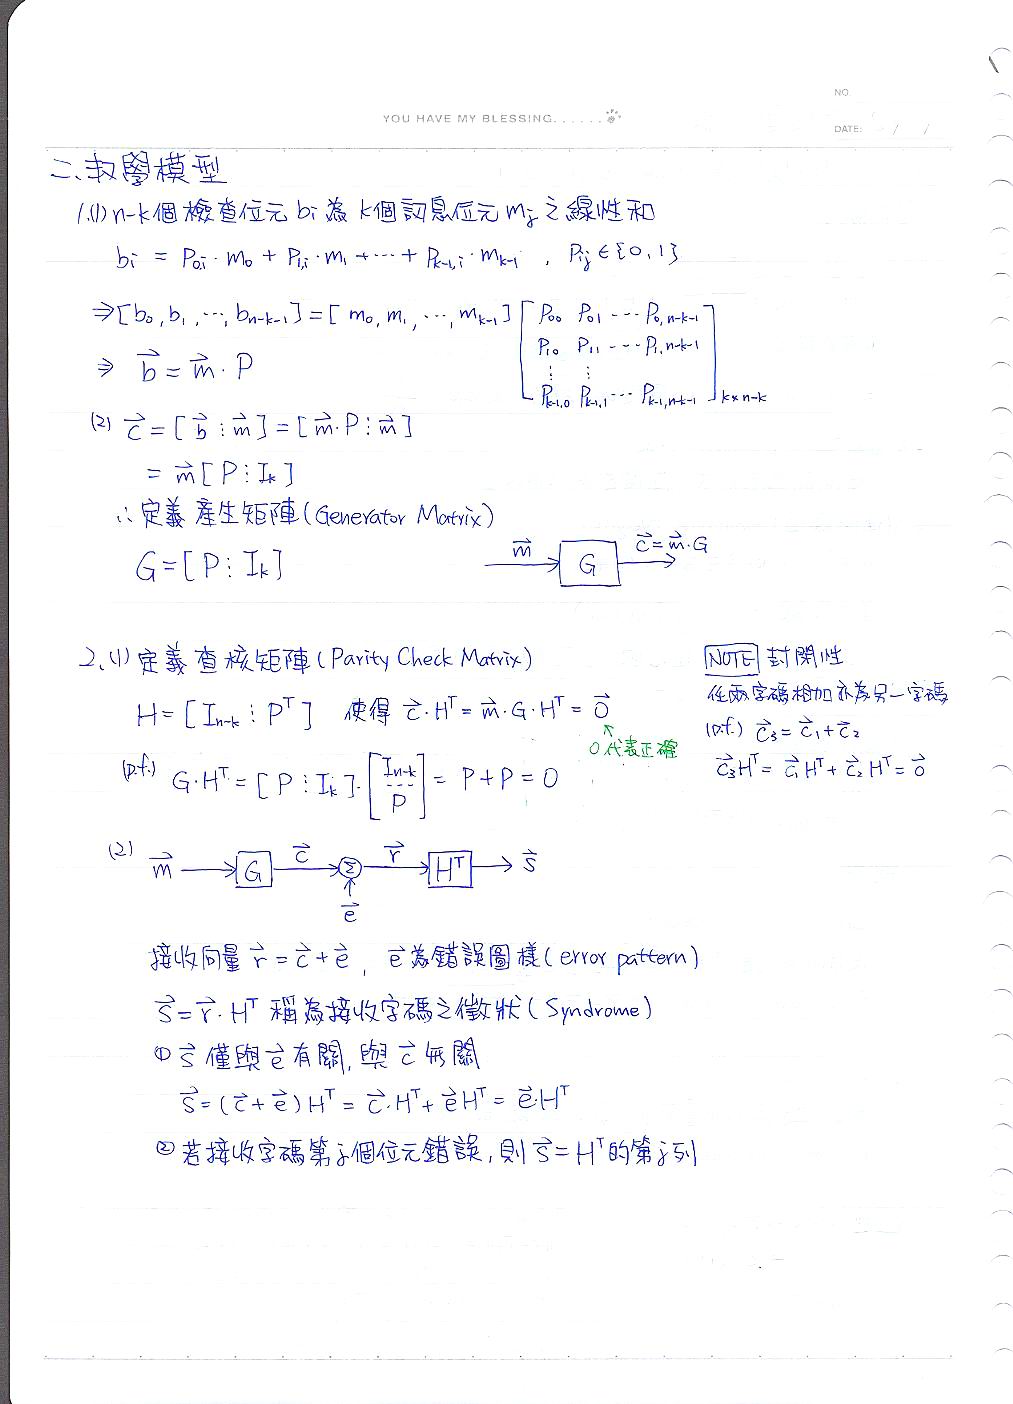 NO.
YOU HAVE MY BLESSING......
DATE: / /
二、教學模型
1.(1) n-k個檢查位元 bi 為 k個訊息位元 mj 之線性和
bi = P0,i·m0 + P1,i·m1 + ··· + Pk-1,i·mk-1 , Pij ∈ {0,1}
⇒ [b0, b1, ···, bn-k-1] = [m0, m1, ···, mk-1] [P00 P01 ··· P0,n-k-1
P10 P11 ··· P1,n-k-1
⋮ ⋮
Pk-1,0 Pk-1,1 ··· Pk-1,n-k-1] k×n-k
⇒ b⃗ = m⃗·P
(2) c⃗ = [b⃗ ⋮ m⃗] = [m⃗·P ⋮ m⃗]
= m⃗[P ⋮ Ik]
∴ 定義產生矩陣(Generator Matrix)
G = [P ⋮ Ik]
m⃗ → G → c⃗ = m⃗·G
2.(1) 定義查核矩陣(Parity Check Matrix)
H = [In-k ⋮ Pᵀ] 使得 c⃗·Hᵀ = m⃗·G·Hᵀ = 0⃗
0代表正確
(p.f.) G·Hᵀ = [P ⋮ Ik]·[In-k
---
P] = P+P = 0
NOTE 封閉性
任兩字碼相加亦為另一字碼
(p.f.) c⃗3 = c⃗1 + c⃗2
c⃗3Hᵀ = c⃗1Hᵀ + c⃗2Hᵀ = 0⃗
(2) m⃗ → G c⃗ → Σ r⃗ → Hᵀ → s⃗
↑
e⃗
接收向量 r⃗ = c⃗ + e⃗ , e⃗為錯誤圖樣(error pattern)
s⃗ = r⃗·Hᵀ 稱為接收字碼之徵狀(Syndrome)
① s⃗ 僅與e⃗有關, 與 c⃗ 無關
s⃗ = (c⃗ + e⃗)Hᵀ = c⃗·Hᵀ + e⃗Hᵀ = e⃗·Hᵀ
② 若接收字碼第j個位元錯誤, 則 s⃗ = Hᵀ的第j列